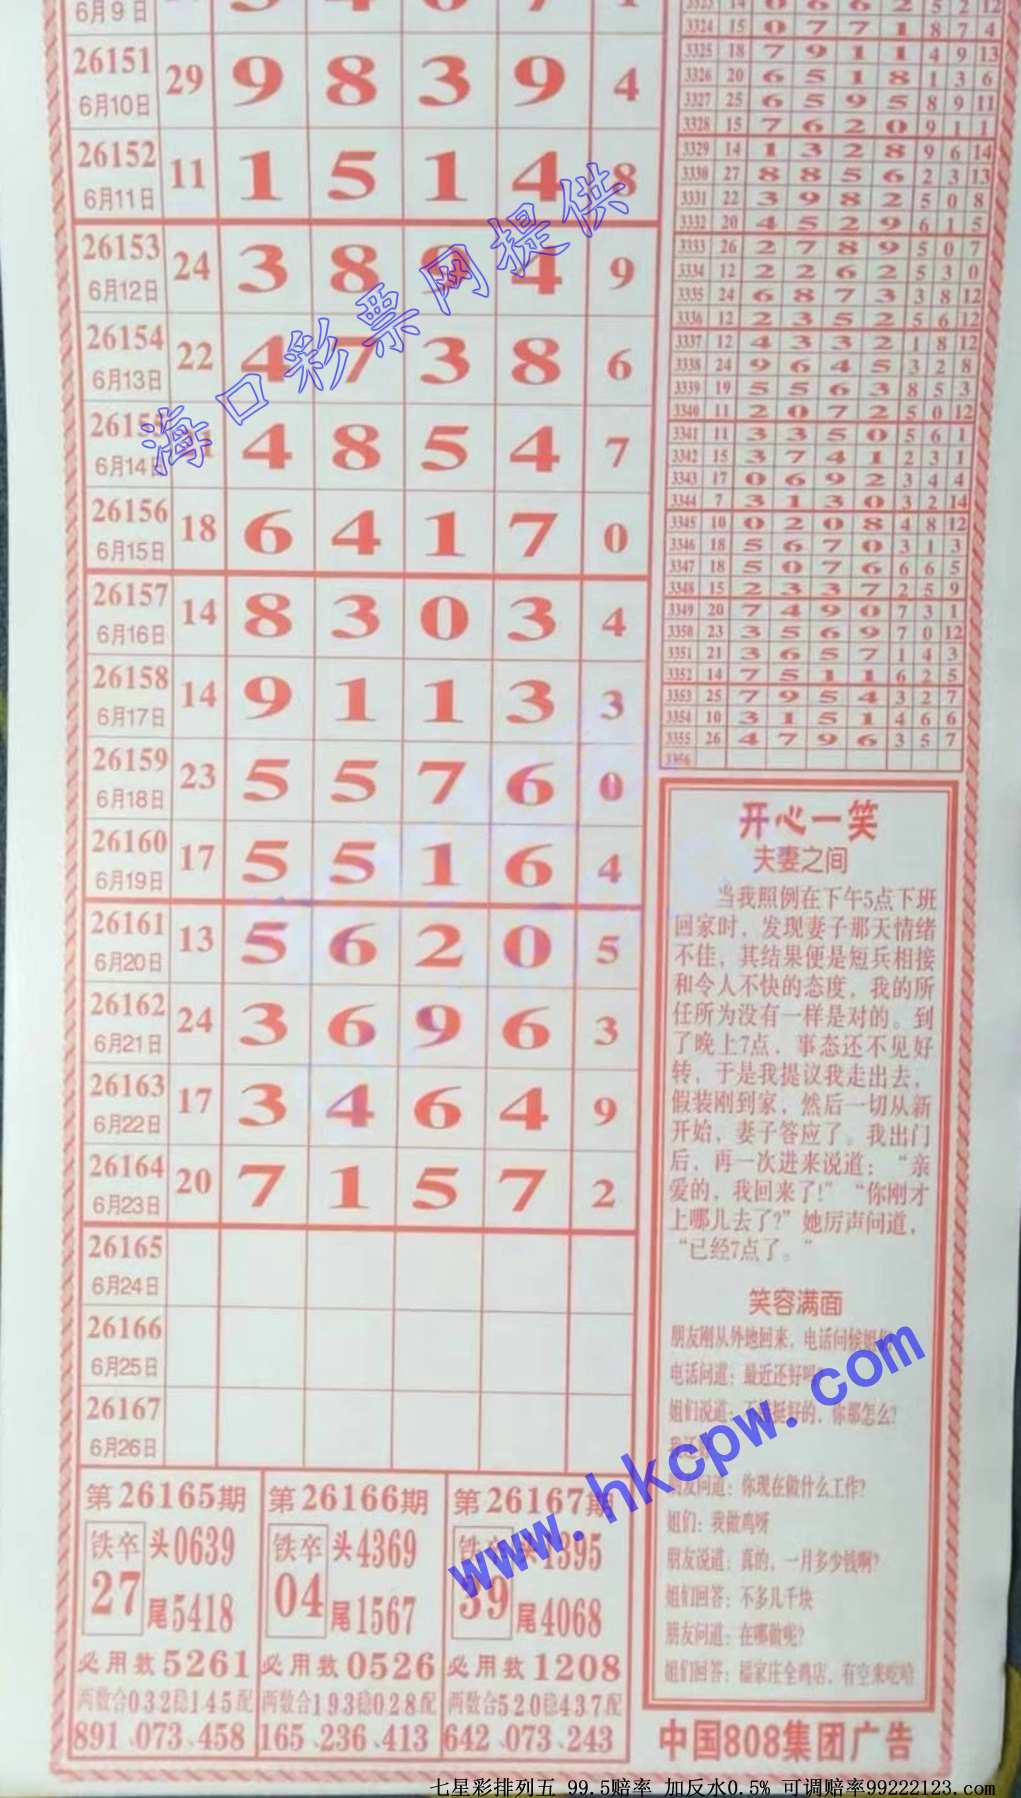 6月9日
26151 29 9 8 3 9 4
6月10日
26152 11 1 5 1 4 8
6月11日
26153 24 3 8 9 4 9
6月12日
26154 22 4 7 3 8 6
6月13日
26155 21 4 8 5 4 7
6月14日
26156 18 6 4 1 7 0
6月15日
26157 14 8 3 0 3 4
6月16日
26158 14 9 1 1 3 3
6月17日
26159 23 5 5 7 6 0
6月18日
26160 17 5 5 1 6 4
6月19日
26161 13 5 6 2 0 5
6月20日
26162 24 3 6 9 6 3
6月21日
26163 17 3 4 6 4 9
6月22日
26164 20 7 1 5 7 2
6月23日
26165
6月24日
26166
6月25日
26167
6月26日
第26165期
铁卒 头0639
27 尾5418
必用数5261
两数合032稳145配
891、073、458
第26166期
铁卒 头4369
04 尾1567
必用数0526
两数合193稳028配
165、236、413
第26167期
铁卒 头4395
39 尾4068
必用数1208
两数合520稳437配
642、073、243
3324 15 0 7 7 1 8 7 4
3325 18 7 9 1 1 4 9 13
3326 20 6 5 1 8 1 3 6
3327 25 6 5 9 5 8 9 11
3328 15 7 6 2 0 9 1 1
3329 14 1 3 2 8 9 6 14
3330 27 8 8 5 6 2 3 13
3331 22 3 9 8 2 5 0 8
3332 20 4 5 2 9 6 1
3333 26 2 7 8 9 5 0 7
3334 12 2 2 6 2 5 3 0
3335 24 6 8 7 3 3 8 12
3336 12 2 3 5 2 5 6 12
3337 12 4 3 3 2 1 8 12
3338 24 9 6 4 5 3 2 8
3339 19 5 5 6 3 8 5 3
3340 11 2 0 7 2 5 0 12
3341 11 3 3 5 0 5 6 1
3342 15 3 7 4 1 2 3 1
3343 17 0 6 9 2 3 4 4
3344 7 3 1 3 0 3 2 14
3345 10 0 2 0 8 4 8 12
3346 18 5 6 7 0 3 1 3
3347 18 5 0 7 6 6 6 5
3348 15 2 3 3 7 2 5 9
3349 20 7 4 9 0 7 3 1
3350 23 3 5 6 9 7 0 12
3351 21 3 6 5 7 1 4 3
3352 14 7 5 1 1 6 2 5
3353 25 7 9 5 4 3 2 7
3354 10 3 1 5 1 4 6 6
3355 26 4 7 9 6 3 5 7
3356
开心一笑
夫妻之间
当我照例在下午5点下班
回家时，发现妻子那天情绪
不佳，其结果便是短兵相接
和令人不快的态度，我的所
任所为没有一样是对的。到
了晚上7点，事态还不见好
转，于是我提议我走出去，
假装刚到家，然后一切从新
开始，妻子答应了。我出门
后，再一次进来说道：“亲
爱的，我回来了!”“你刚才
上哪儿去了?”她厉声问道，
“已经7点了。”
笑容满面
朋友刚从外地回来，电话问候姐们
电话问道：最近还好吗?
姐们说道：挺好的，你那怎么?
朋友问道：你现在做什么工作?
姐们：我做鸡呀
朋友说道：真的，一月多少钱啊?
姐们回答：不多几千块
朋友问道：在哪做呢?
姐们回答：福家庄全鸡店，有空来吃哈
中国808集团广告
海口彩票网提供
www.hkcpw.com
七星彩排列五 99.5赔率 加反水0.5% 可调赔率99222123.com